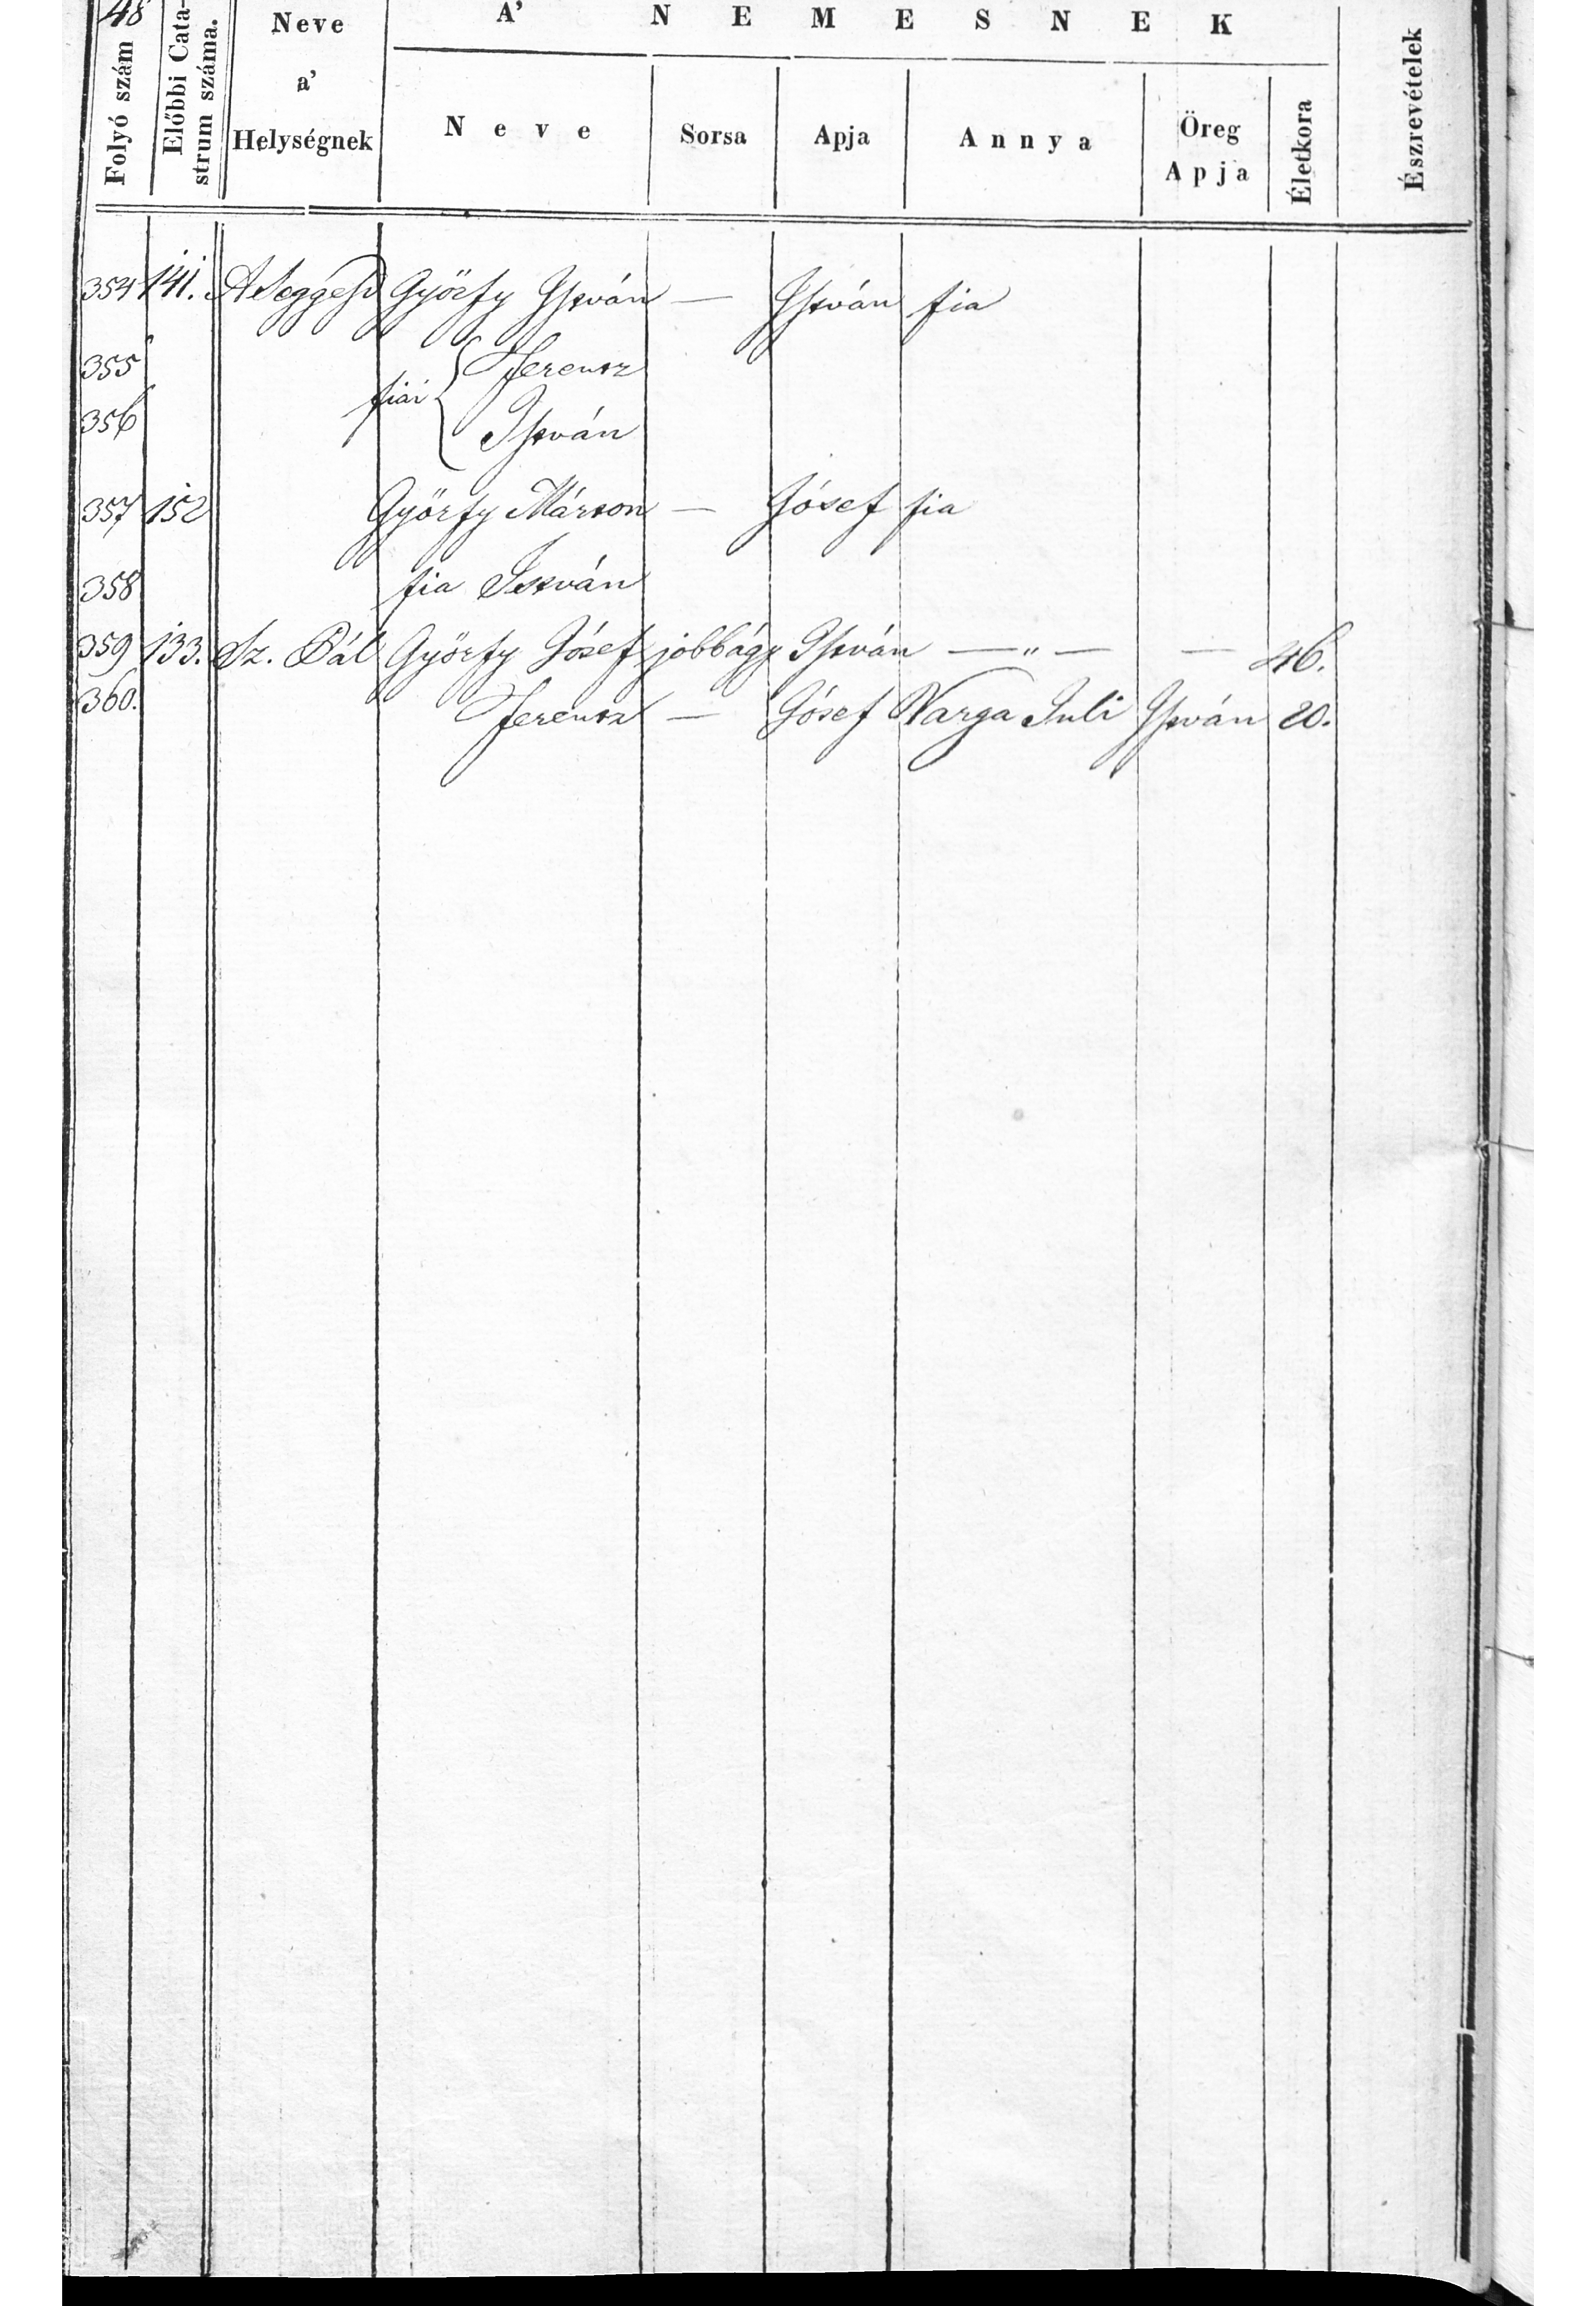 48
Folyó szám
Előbbi Cata-
strum száma.
Neve
a'
Helységnek
A' NEMESNEK
Neve
Sorsa
Apja
Annya
Öreg
Apja
Életkora
Észrevételek
354 141. A Seggesd Györfy István — István fia
355 Ferencz
fiai
356 István
357 152 Györfy Márton — Jósef fia
358 fia István
359 133. Sz. Pál Györfy Jósef jobbágy István — „ — — 46.
360. Ferencz — Jósef Varga Juli István 20.